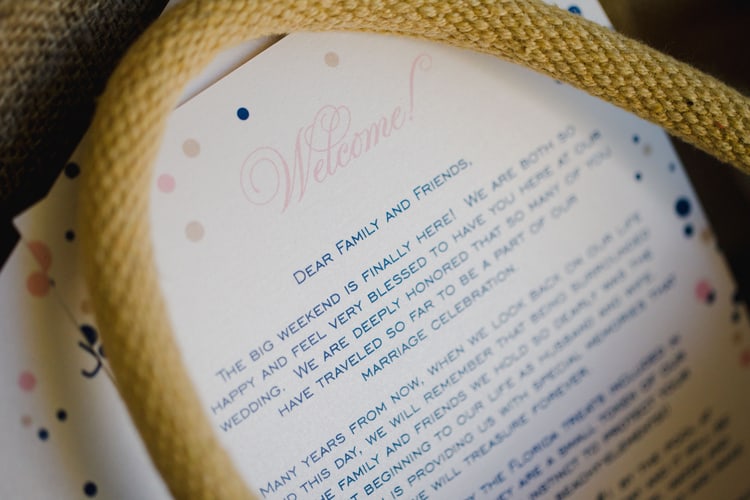 Welcome!
Dear Family and Friends,
The big weekend is finally here! We are both so
happy and feel very blessed to have you here at our
wedding. We are deeply honored that so many of you
have traveled so far to be a part of our
marriage celebration.
Many years from now, when we look back on our life
this day, we will remember that being surrounded
family and friends we hold so dearly was the
beginning to our life as husband and wife.
is providing us with special memories that
will treasure forever.
the Florida treats included in
are a small token of our